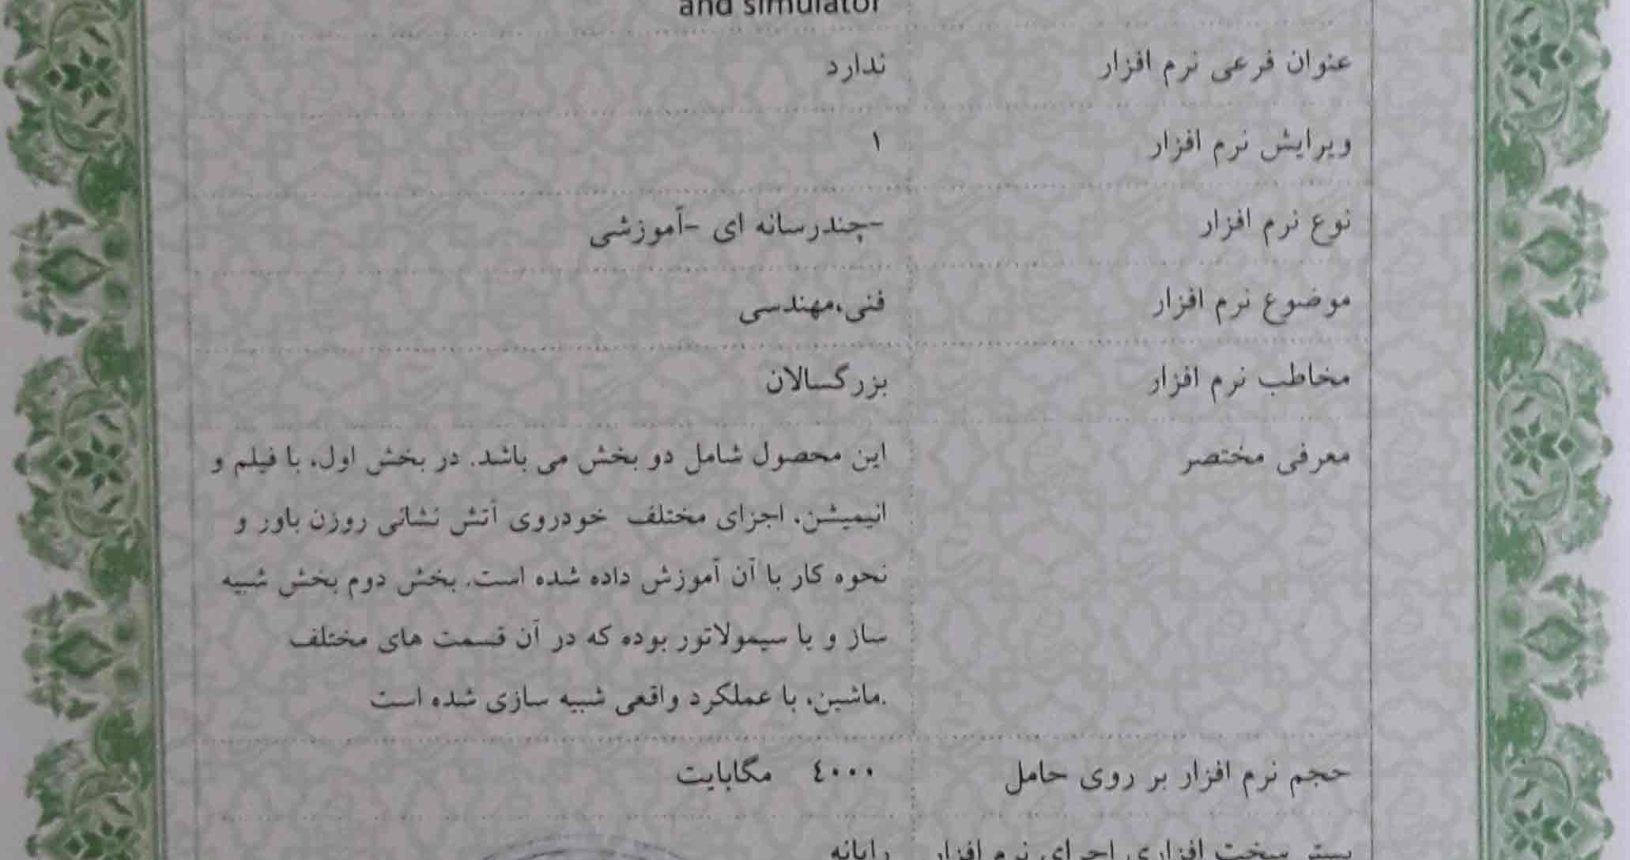 and simulator
عنوان فرعی نرم افزار ندارد
ویرایش نرم افزار ۱
نوع نرم افزار -چندرسانه ای -آموزشی
موضوع نرم افزار فنی،مهندسی
مخاطب نرم افزار بزرگسالان
معرفی مختصر این محصول شامل دو بخش می باشد. در بخش اول، با فیلم و
انیمیشن، اجزای مختلف خودروی آتش نشانی روزن باور و
نحوه کار با آن آموزش داده شده است. بخش دوم بخش شبیه
ساز و یا سیمولاتور بوده که در آن قسمت های مختلف
.ماشین، با عملکرد واقعی شبیه سازی شده است
حجم نرم افزار بر روی حامل ٤٠٠٠ مگابایت
بستر سخت افزاری اجرای نرم افزار رایانه